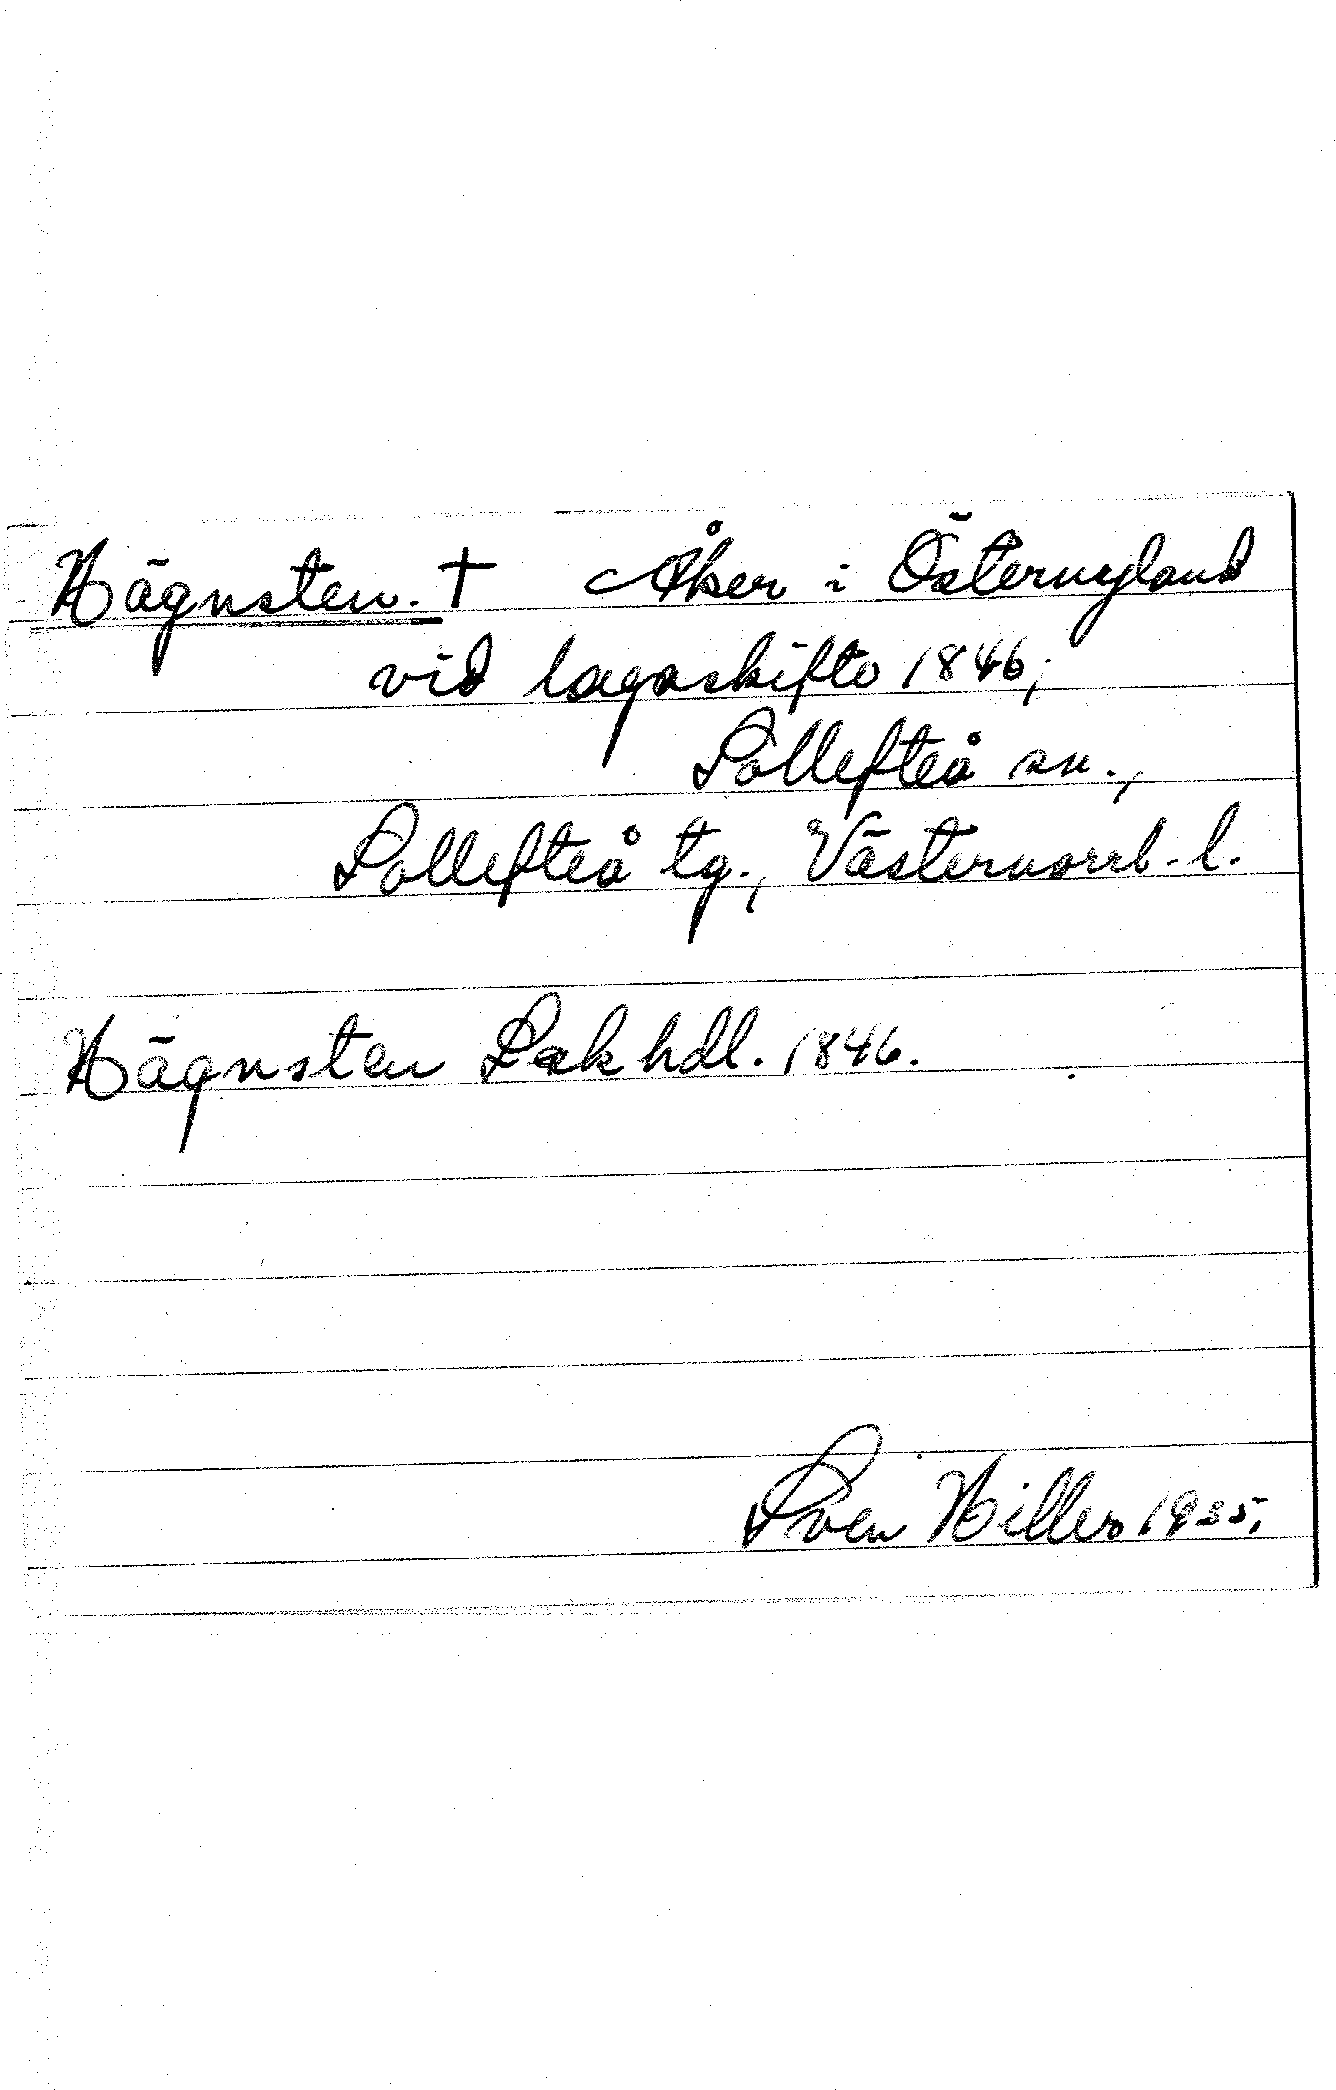 Hägnsten. † Åker i Östernyland
vid lagaskifte 1846;
Sollefteå sn.,
Sollefteå tg., Västernorrl. l.
Hägnsten Lsk hdl. 1846.
Sven Hiller 1935.